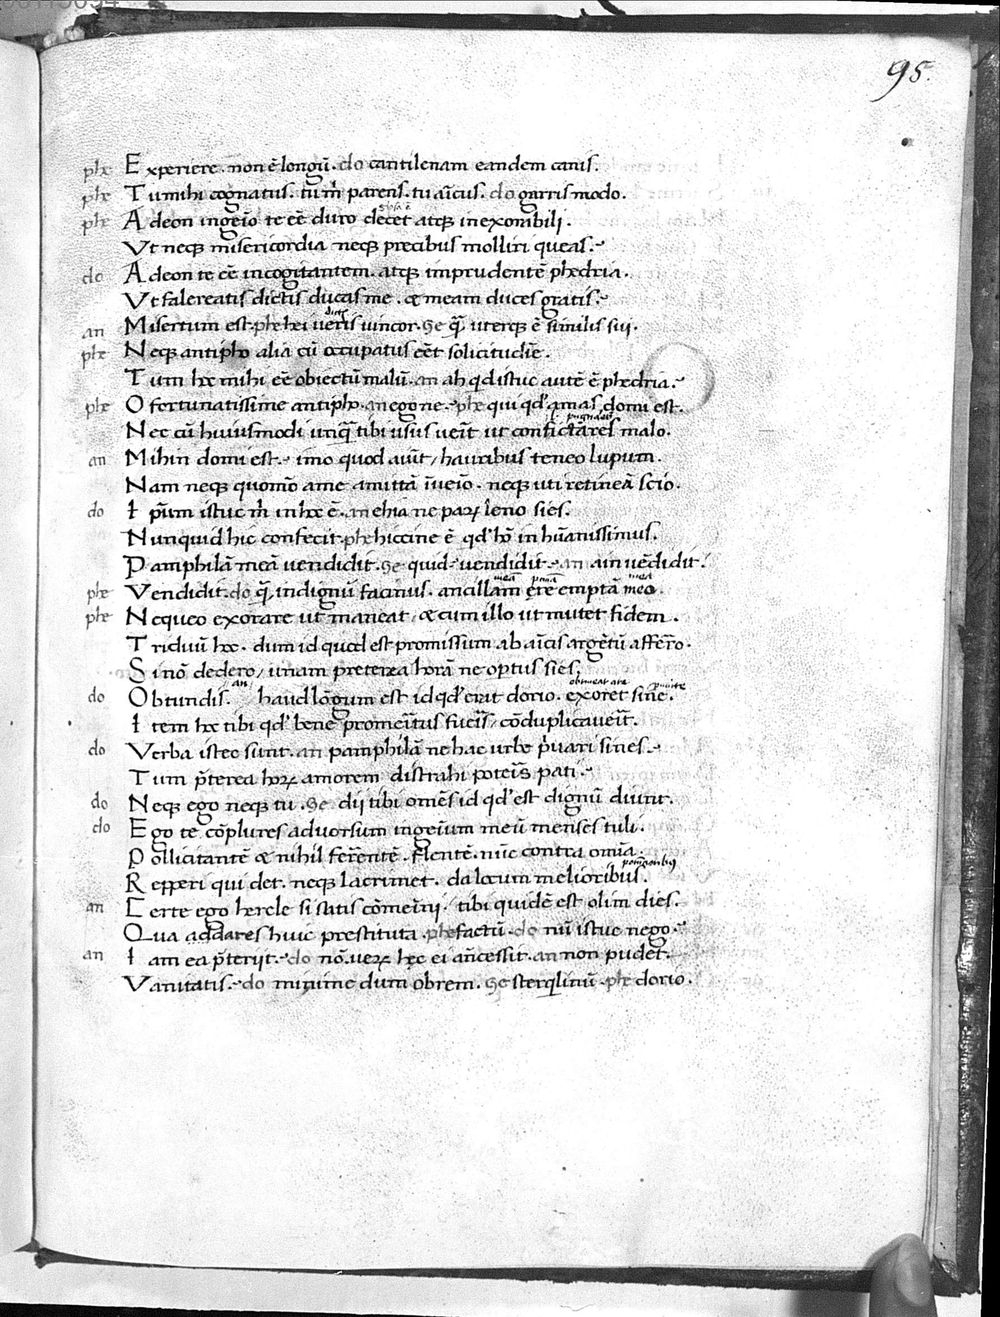 95.
phe Experiere. non ē longū. do cantilenam eandem canis.
phe Tu mihi cognatus. tu m̄ parens. tu aīcus. do garris modo.
phe Adeon ingeīo te eē duro decet atq; inexorabilj.
Vt neq; misericordia neq; precibus molliri queas.
do Adeon te eē incogitantem. atq; imprudentē phedria.
Vt falereatis dictis ducas me. & meam duces gratis.
an Misertum est. phe hei ueris uincor. ge q̄ uterq; ē similis suj.
phe Neq; antipho alia cū occupatus eēt solicitudīe.
Tum hec mihi eē obiectū malū. an ah qd istuc autē ē phedria.
phe O fortunatissime antipho. an egone. phe qui qd' amas domi est.
Nec cū huiusmodi unq̄ tibi usus ueīt ut conflictares malo.
an Mihin domi est. imo quod aiūt, hauribus teneo lupum.
Nam neq; quomō a me amittā īueīo. neq; uti retineā scio.
do Ipsum istuc m̄ in hec ē. an ehia ne parum leno sies.
Nunquid hic confecit. phe hiccine ē qd' hō inhūanissimus.
Pamphilā meā uendidit. ge quid uendidit. an ain uēdidit.
phe Vendidit. do q̄ indignū facinus. ancillam ere emptā meo.
phe Nequeo exorare ut maneat, & cum illo ut mutet fidem.
Triduū hec. dum id quod est promissum ab aīcis argētū affero.
Si nō dedero, unam preterea horā ne optus sies.
do Obtundis. an haud lōgum est id qd' erat dorio. exoret sine.
Item hec tibi qd' bene promeritus fueris, cōduplicaueīt.
do Verba istec sunt. an pamphilā ne hac urbe p̄uari sines.
Tum p̄terea horum amorem distrahi poteris pati.
do Neq; ego neq; tu. ge dij tibi omēs id qd' est dignū duint.
do Ego te cōplures aduorsum ingeīum meū menses tuli.
Pollicitantē & nihil ferentē. flentē. nūc contra omīa.
Repperi qui det. neq; lacrimet. da locum melioribus.
an Certe ego hercle si satis cōmeminj, tibi quidē est olim dies.
Qua addares huic prestituta. phe factū. do nū istuc nego.
an Iam ea p̄terijt. do nō. uerum hec ei añcessit. an non pudet.
Vanitatis. do minime dum ob rem. ge sterqlinū. phe dorio.